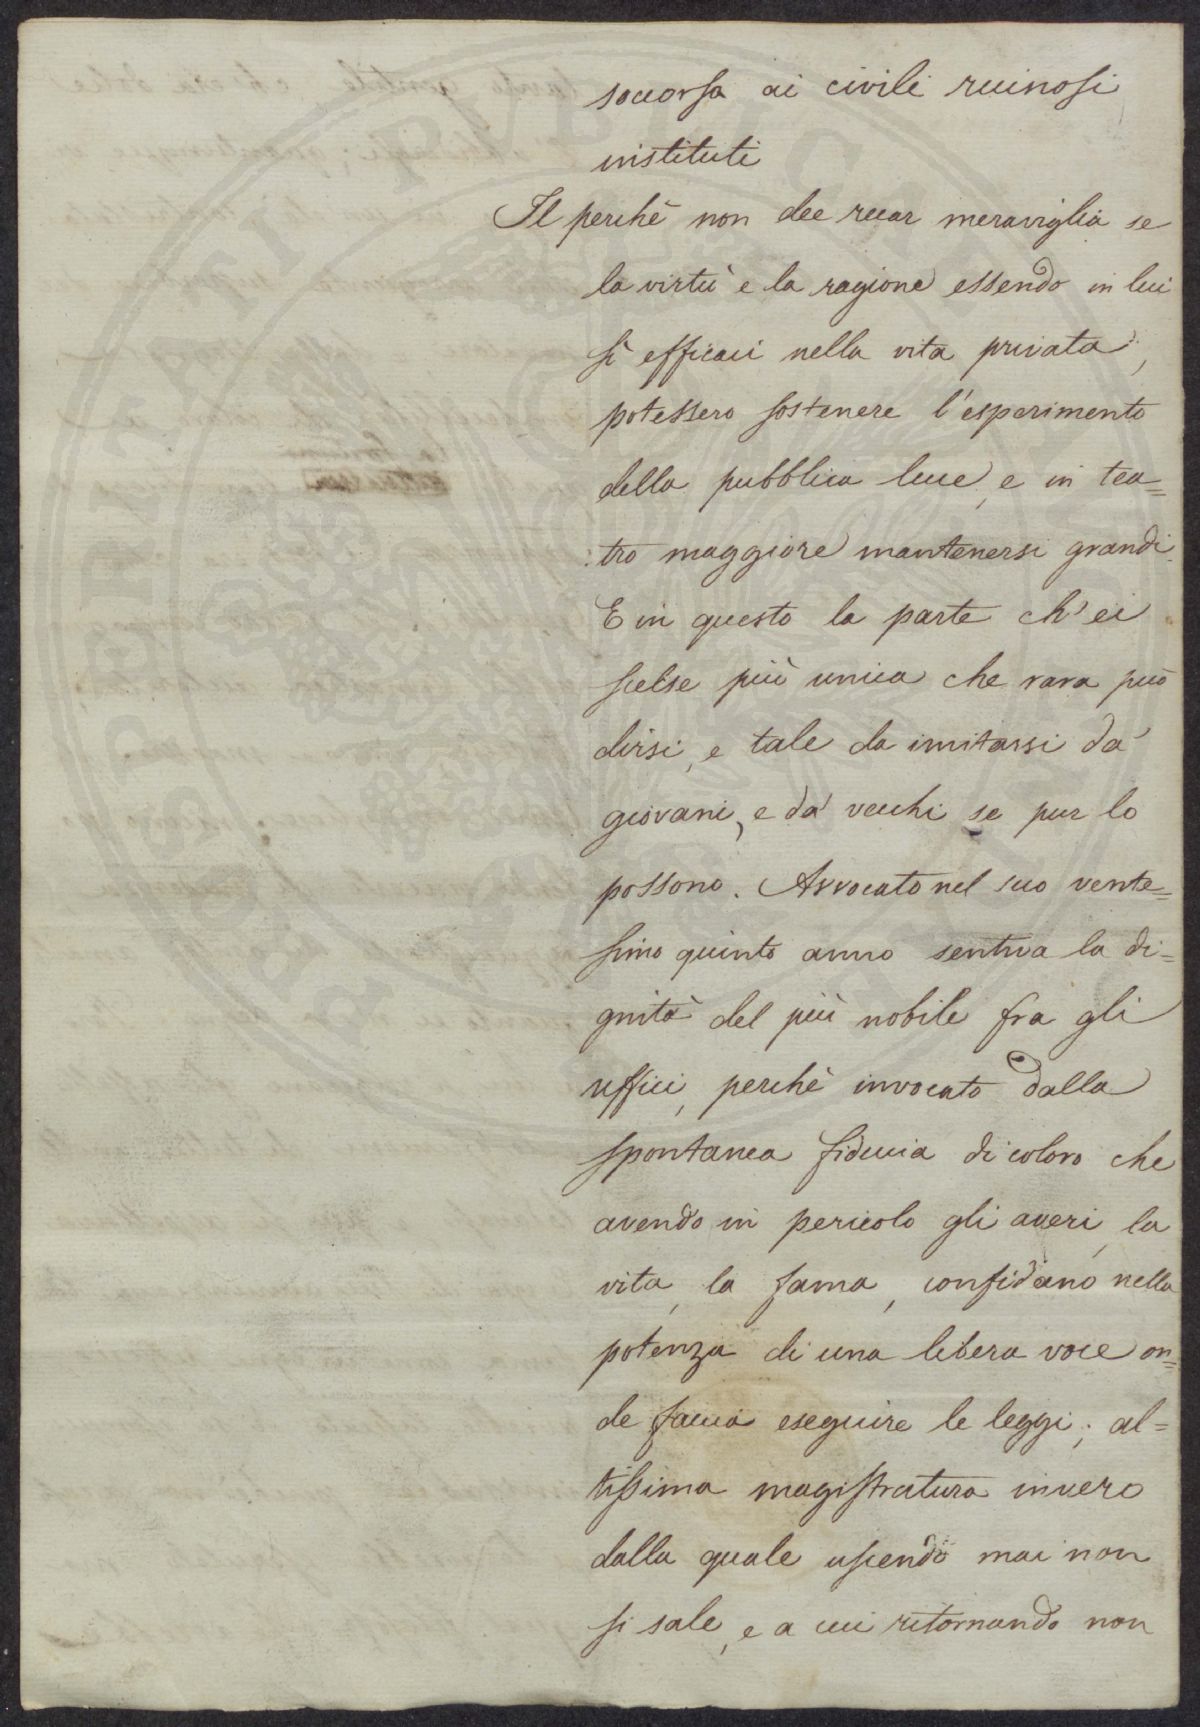 soccorsa ai civili ruinosi
instituti
Il perchè non dee recar meraviglia se
la virtù e la ragione essendo in lui
sì efficaci nella vita privata,
potessero sostenere l'esperimento
della pubblica luce, e in tea=
:tro maggiore mantenersi grandi.
E in questo la parte ch'ei
scelse più unica che rara può
dirsi, e tale da imitarsi da'
giovani, e da' vecchi se pur lo
possono. Avvocato nel suo vente=
simo quinto anno sentiva la di=
gnità del più nobile fra gli
uffici, perchè invocato dalla
spontanea fiducia di coloro che
avendo in pericolo gli averi, la
vita, la fama, confidano nella
potenza di una libera voce on=
de faccia eseguire le leggi; al=
tissima magistratura invero
dalla quale uscendo mai non
si sale, e a cui ritornando non